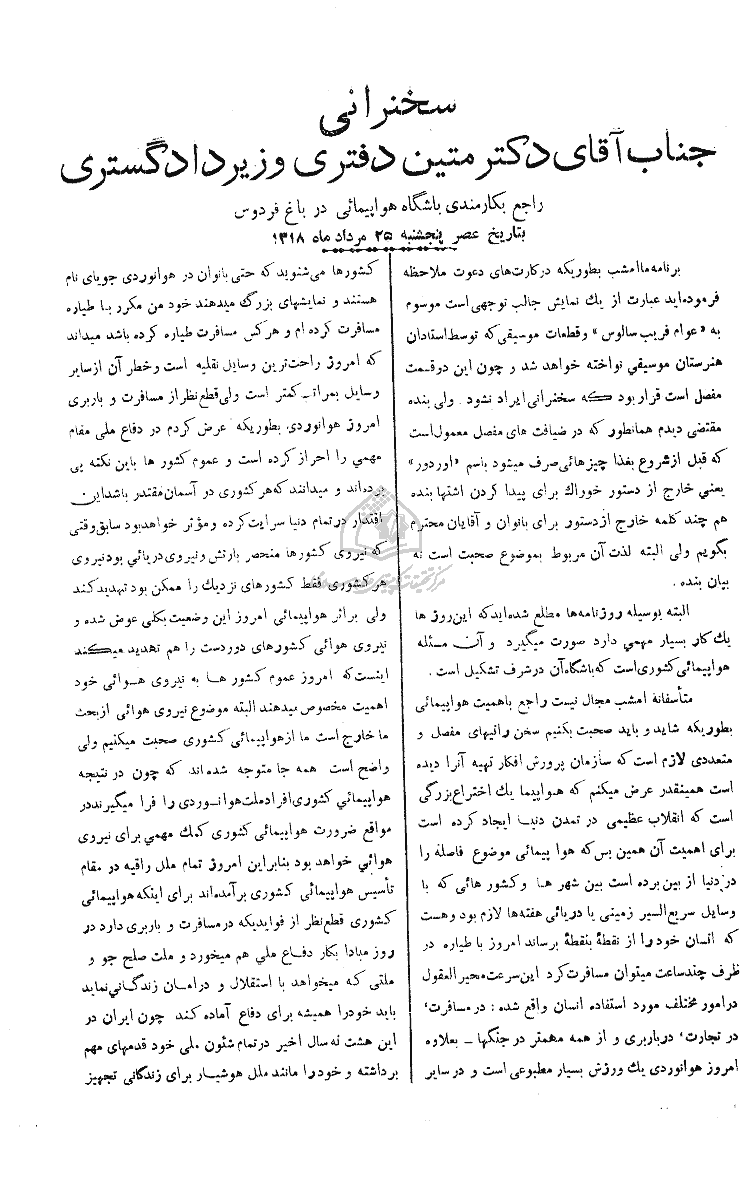 سخنرانی
جناب آقای دکتر متین دفتری وزیر دادگستری
راجع بکارمندی باشگاه هواپیمائی در باغ فردوس
بتاریخ عصر پنجشنبه ۲۵ مرداد ماه ۱۳۱۸
برنامه ما امشب بطوریکه در کارت‌های دعوت ملاحظه
فرموده‌اید عبارت از یك نمایش جالب توجهی است موسوم
به «عوام فریب سالوس» و قطعات موسیقی که توسط استادان
هنرستان موسیقی نواخته خواهد شد و چون این دو قسمت
مفصل است قرار بود که سخنرانی ایراد نشود . ولی بنده
مقتضی دیدم همانطور که در ضیافت های مفصل معمول است
که قبل از شروع بغذا چیزهائی صرف میشود باسم «اوردور»
یعنی خارج از دستور خوراك برای پیدا کردن اشتها بنده
هم چند کلمه خارج از دستور برای بانوان و آقایان محترم
بگویم ولی البته لذت آن مربوط بموضوع صحبت است نه
بیان بنده .
البته بوسیله روزنامه‌ها مطلع شده‌اید که این روز ها
یك کار بسیار مهمی دارد صورت میگیرد و آن مسئله
هواپیمائی کشوری است که باشگاه آن در شرف تشکیل است .
متأسفانه امشب مجال نیست راجع باهمیت هواپیمائی
بطوریکه شاید و باید صحبت بکنیم سخن رانیهای مفصل و
متعددی لازم است که سازمان پرورش افکار تهیه آنرا دیده
است همینقدر عرض میکنم که هواپیما یك اختراع بزرگی
است که انقلاب عظیمی در تمدن دنیا ایجاد کرده است
برای اهمیت آن همین بس که هوا پیمائی موضوع فاصله را
در دنیا از بین برده است بین شهر ها و کشور هائی که با
وسایل سریع السیر زمینی یا دریائی هفته‌ها لازم بود و هست
که انسان خود را از نقطهٔ بنقطهٔ برساند امروز با طیاره در
ظرف چند ساعت میتوان مسافرت کرد این سرعت محیرالعقول
در امور مختلف مورد استفاده انسان واقع شده : در مسافرت،
در تجارت، در باربری و از همه مهمتر در جنگها ــ بعلاوه
امروز هوانوردی یك ورزش بسیار مطبوعی است و در سایر
کشورها می‌شنوید که حتی بانوان در هوانوردی جویای نام
هستند و نمایشهای بزرگ میدهند خود من مکرر با طیاره
مسافرت کرده ام و هرکس مسافرت طیاره کرده باشد میداند
که امروز راحت‌ترین وسایل نقلیه است و خطر آن از سایر
وسایل بمراتب کمتر است ولی قطع نظر از مسافرت و باربری
امروز هوانوردی بطوریکه عرض کردم در دفاع ملی مقام
مهمی را احراز کرده است و عموم کشور ها باین نکته پی
برده‌اند و میدانند که هر کشوری در آسمان مقتدر باشد این
اقتدار در تمام دنیا سرایت کرده و مؤثر خواهد بود سابق وقتی
که نیروی کشورها منحصر بارتش و نیروی دریائی بود نیروی
هر کشوری فقط کشورهای نزدیك را ممکن بود تهدید کند
ولی براثر هواپیمائی امروز این وضعیت بکلی عوض شده و
نیروی هوائی کشورهای دوردست را هم تهدید میکند
اینست که امروز عموم کشور ها به نیروی هوائی خود
اهمیت مخصوص میدهند البته موضوع نیروی هوائی از بحث
ما خارج است ما از هواپیمائی کشوری صحبت میکنیم ولی
واضح است همه جا متوجه شده‌اند که چون در نتیجه
هواپیمائی کشوری افراد ملت هوانوردی را فرا میگیرند در
مواقع ضرورت هواپیمائی کشوری کمك مهمی برای نیروی
هوائی خواهد بود بنابراین امروز تمام ملل راقیه در مقام
تأسیس هواپیمائی کشوری برآمده‌اند برای اینکه هواپیمائی
کشوری قطع نظر از فوایدیکه در مسافرت و باربری دارد در
روز مبادا بکار دفاع ملی هم میخورد و ملت صلح جو و
ملتی که میخواهد با استقلال و در امان زندگانی نماید
باید خود را همیشه برای دفاع آماده کند چون ایران در
این هشت نه سال اخیر در تمام شئون ملی خود قدمهای مهم
برداشته و خود را مانند ملل هوشیار برای زندگانی تجهیز